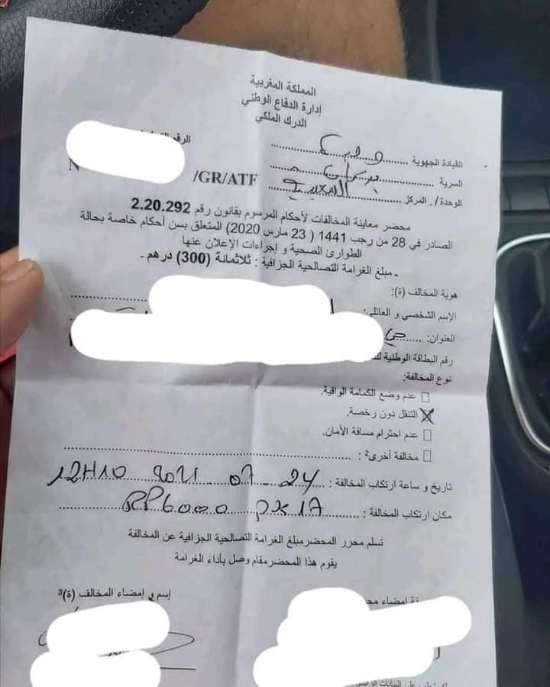 المملكة المغربية
إدارة الدفاع الوطني
الدرك الملكي
القيادة الجهوية
السرية
الوحدة / المركز السعيدية
/GR/ATF
محضر معاينة المخالفات لأحكام المرسوم بقانون رقم 2.20.292
الصادر في 28 من رجب 1441 ( 23 مارس 2020) المتعلق بسن أحكام خاصة بحالة
الطوارئ الصحية و إجراءات الإعلان عنها
- مبلغ الغرامة التصالحية الجزافية : ثلاثمائة (300) درهم -
هوية المخالف (ة):
الإسم الشخصي و العائلي:
العنوان:
رقم البطاقة الوطنية
نوع المخالفة:
عدم وضع الكمامة الواقية.
التنقل دون رخصة.
عدم احترام مسافة الأمان.
مخالفة أخرى² :
تاريخ و ساعة ارتكاب المخالفة : 24 - 07 - 2021 12H10
مكان ارتكاب المخالفة : RP6000 PK 17
تسلم محرر المحضر مبلغ الغرامة التصالحية الجزافية عن المخالفة
يقوم هذا المحضر مقام وصل بأداء الغرامة
إسم و إمضاء المخالف (ة)³
إمضاء